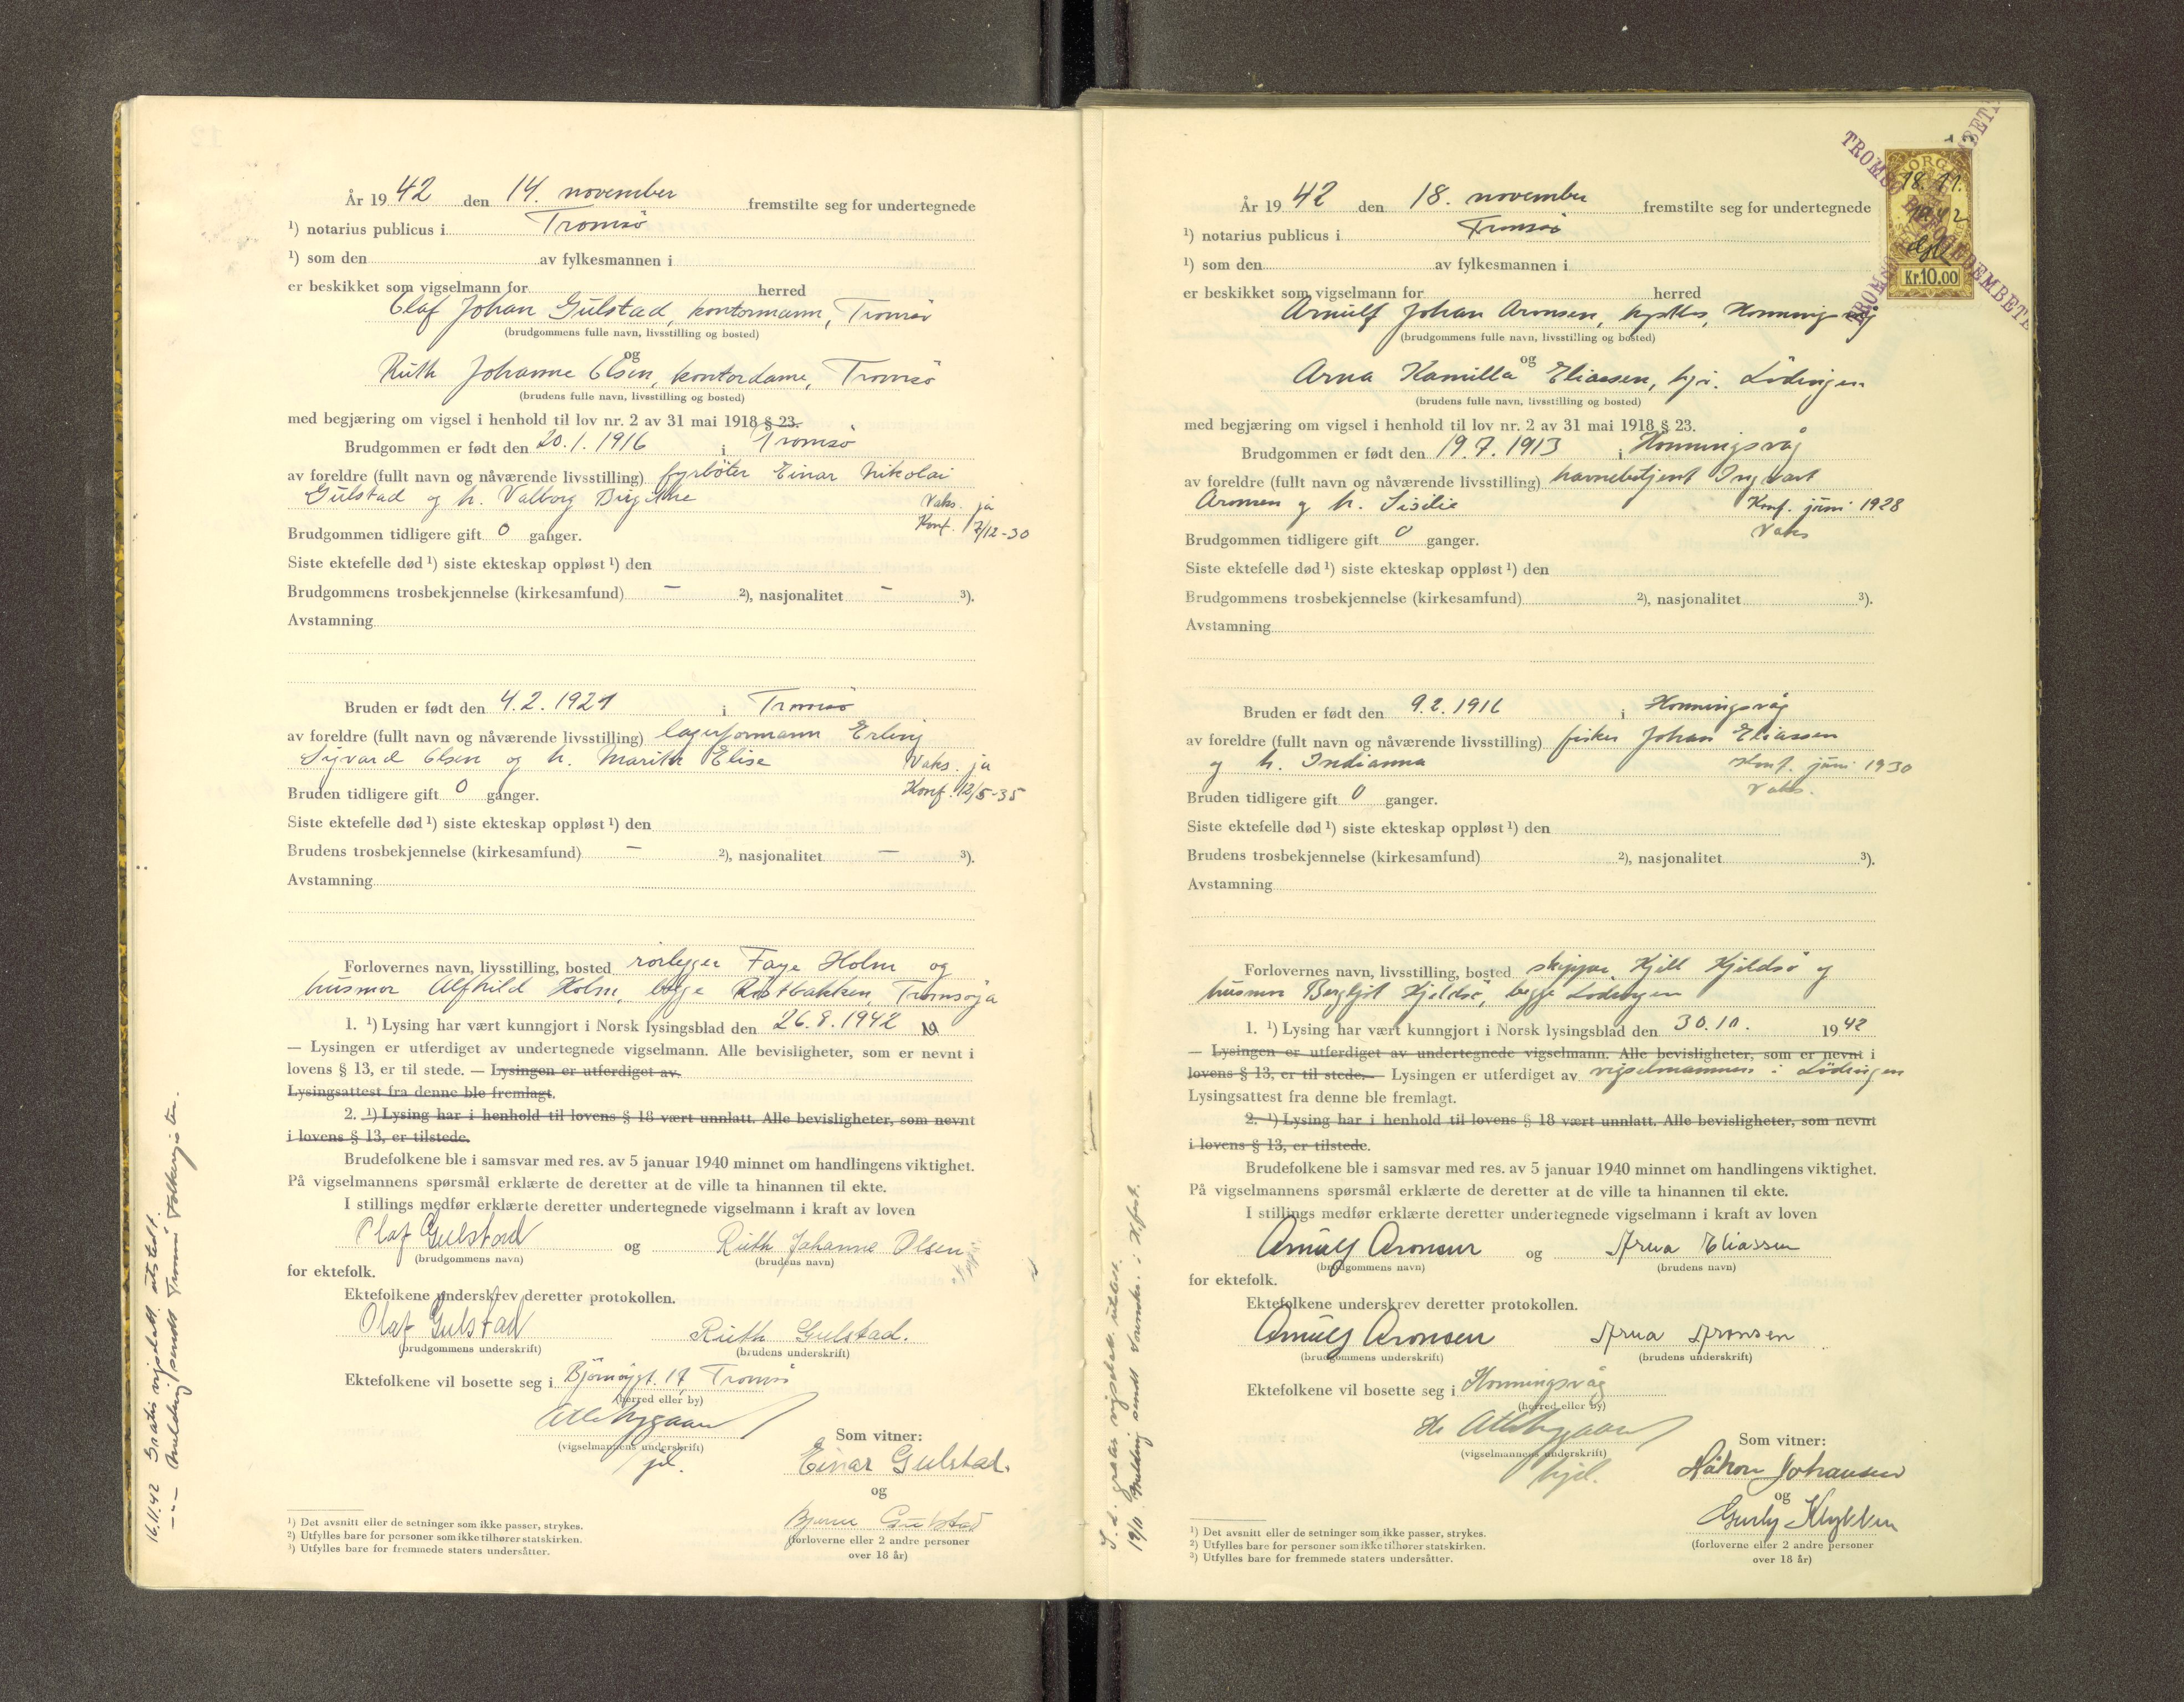 År 1942 den 14. november fremstilte seg for undertegnede
¹) notarius publicus i Tromsö
¹) som den av fylkesmannen i
er beskikket som vigselmann for herred
Olaf Johan Gulstad, kontormann, Tromsö
(brudgommens fulle navn, livsstilling og bosted)
og
Ruth Johanne Olsen, kontordame, Tromsö
(brudens fulle navn, livsstilling og bosted)
med begjæring om vigsel i henhold til lov nr. 2 av 31 mai 1918 § 23.
Brudgommen er født den 20.1.1916 i Tromsö
av foreldre (fullt navn og nåværende livsstilling) fyrböter Einar Nikolai
Gulstad og h. Valborg Birgithe Vaks. ja
Konf. 7/12-30
Brudgommen tidligere gift 0 ganger.
Siste ektefelle død ¹) siste ekteskap oppløst ¹) den
Brudgommens trosbekjennelse (kirkesamfund) — ²), nasjonalitet — ³).
Avstamning
Bruden er født den 4.2.1921 i Tromsö
av foreldre (fullt navn og nåværende livsstilling) lagerformann Erling
Sigvard Olsen og h. Marith Elise Vaks. ja
Bruden tidligere gift 0 ganger. Konf. 12/5-35
Siste ektefelle død ¹) siste ekteskap oppløst ¹) den
Brudens trosbekjennelse (kirkesamfund) — ²), nasjonalitet — ³).
Avstamning
Forlovernes navn, livsstilling, bosted rörlegger Faye Holm og
husmor Alfhild Holm, begge Rostbakken, Tromsöya
1. ¹) Lysing har vært kunngjort i Norsk lysingsblad den 26.9.1942 19
— Lysingen er utferdiget av undertegnede vigselmann. Alle bevisligheter, som er nevnt i
lovens § 13, er til stede. — Lysingen er utferdiget av
Lysingsattest fra denne ble fremlagt.
2. ¹) Lysing har i henhold til lovens § 18 vært unnlatt. Alle bevisligheter, som nevnt
i lovens § 13, er tilstede.
Brudefolkene ble i samsvar med res. av 5 januar 1940 minnet om handlingens viktighet.
På vigselmannens spørsmål erklærte de deretter at de ville ta hinannen til ekte.
I stillings medfør erklærte deretter undertegnede vigselmann i kraft av loven
Olaf Gulstad og Ruth Johanne Olsen
(brudgommens navn) (brudens navn)
for ektefolk.
Ektefolkene underskrev deretter protokollen.
Olaf Gulstad Ruth Gulstad.
(brudgommens underskrift) (brudens underskrift)
Ektefolkene vil bosette seg i Björnöygt. 17, Tromsö
(herred eller by)
(vigselmannens underskrift)
Som vitner:
Einar Gulstad.
og
Bjarne Gulstad
(forloverne eller 2 andre personer
over 18 år)
¹) Det avsnitt eller de setninger som ikke passer, strykes.
²) Utfylles bare for personer som ikke tilhører statskirken.
³) Utfylles bare for fremmede staters undersåtter.
16.11.42 Gratis vigselatt. utstedt.
—"— Melding sendt Tromsö Folkeregister.
År 1942 den 18. november fremstilte seg for undertegnede
¹) notarius publicus i Tromsö
¹) som den av fylkesmannen i
er beskikket som vigselmann for herred
Arnulf Johan Aronsen, Honningsvåg
(brudgommens fulle navn, livsstilling og bosted)
og
Arna Kamilla Eliassen, hjv. Lödingen
(brudens fulle navn, livsstilling og bosted)
med begjæring om vigsel i henhold til lov nr. 2 av 31 mai 1918 § 23.
Brudgommen er født den 19.7.1913 i Honningsvåg
av foreldre (fullt navn og nåværende livsstilling) havnebetjent Ingvart
Aronsen og h. Sisilie Konf. juni 1928
Vaks
Brudgommen tidligere gift 0 ganger.
Siste ektefelle død ¹) siste ekteskap oppløst ¹) den
Brudgommens trosbekjennelse (kirkesamfund) ²), nasjonalitet ³).
Avstamning
Bruden er født den 9.2.1916 i Honningsvåg
av foreldre (fullt navn og nåværende livsstilling) fisker Johan Eliassen
og h. Indianna Konf. juni 1930
Vaks.
Bruden tidligere gift 0 ganger.
Siste ektefelle død ¹) siste ekteskap oppløst ¹) den
Brudens trosbekjennelse (kirkesamfund) ²), nasjonalitet ³).
Avstamning
Forlovernes navn, livsstilling, bosted skipper Kjell Kjeldsö og
husmor Bergljot Kjeldsö, begge Lödingen
1. ¹) Lysing har vært kunngjort i Norsk lysingsblad den 30.10. 1942
— Lysingen er utferdiget av undertegnede vigselmann. Alle bevisligheter, som er nevnt i
lovens § 13, er til stede. — Lysingen er utferdiget av vigselmannen i Lödingen
Lysingsattest fra denne ble fremlagt.
2. ¹) Lysing har i henhold til lovens § 18 vært unnlatt. Alle bevisligheter, som nevnt
i lovens § 13, er tilstede.
Brudefolkene ble i samsvar med res. av 5 januar 1940 minnet om handlingens viktighet.
På vigselmannens spørsmål erklærte de deretter at de ville ta hinannen til ekte.
I stillings medfør erklærte deretter undertegnede vigselmann i kraft av loven
Arnulf Aronsen og Arna Eliassen
(brudgommens navn) (brudens navn)
for ektefolk.
Ektefolkene underskrev deretter protokollen.
Arnulf Aronsen Arna Aronsen
(brudgommens underskrift) (brudens underskrift)
Ektefolkene vil bosette seg i Honningsvåg
(herred eller by)
(vigselmannens underskrift)
hjel.
Som vitner:
Håkon Johansen
og
Gurly Klykken
(forloverne eller 2 andre personer
over 18 år)
¹) Det avsnitt eller de setninger som ikke passer, strykes.
²) Utfylles bare for personer som ikke tilhører statskirken.
³) Utfylles bare for fremmede staters undersåtter.
S.d. gratis vigselatt. utstedt.
19/11 Melding sendt
18.11.
1942
Kr 10.00